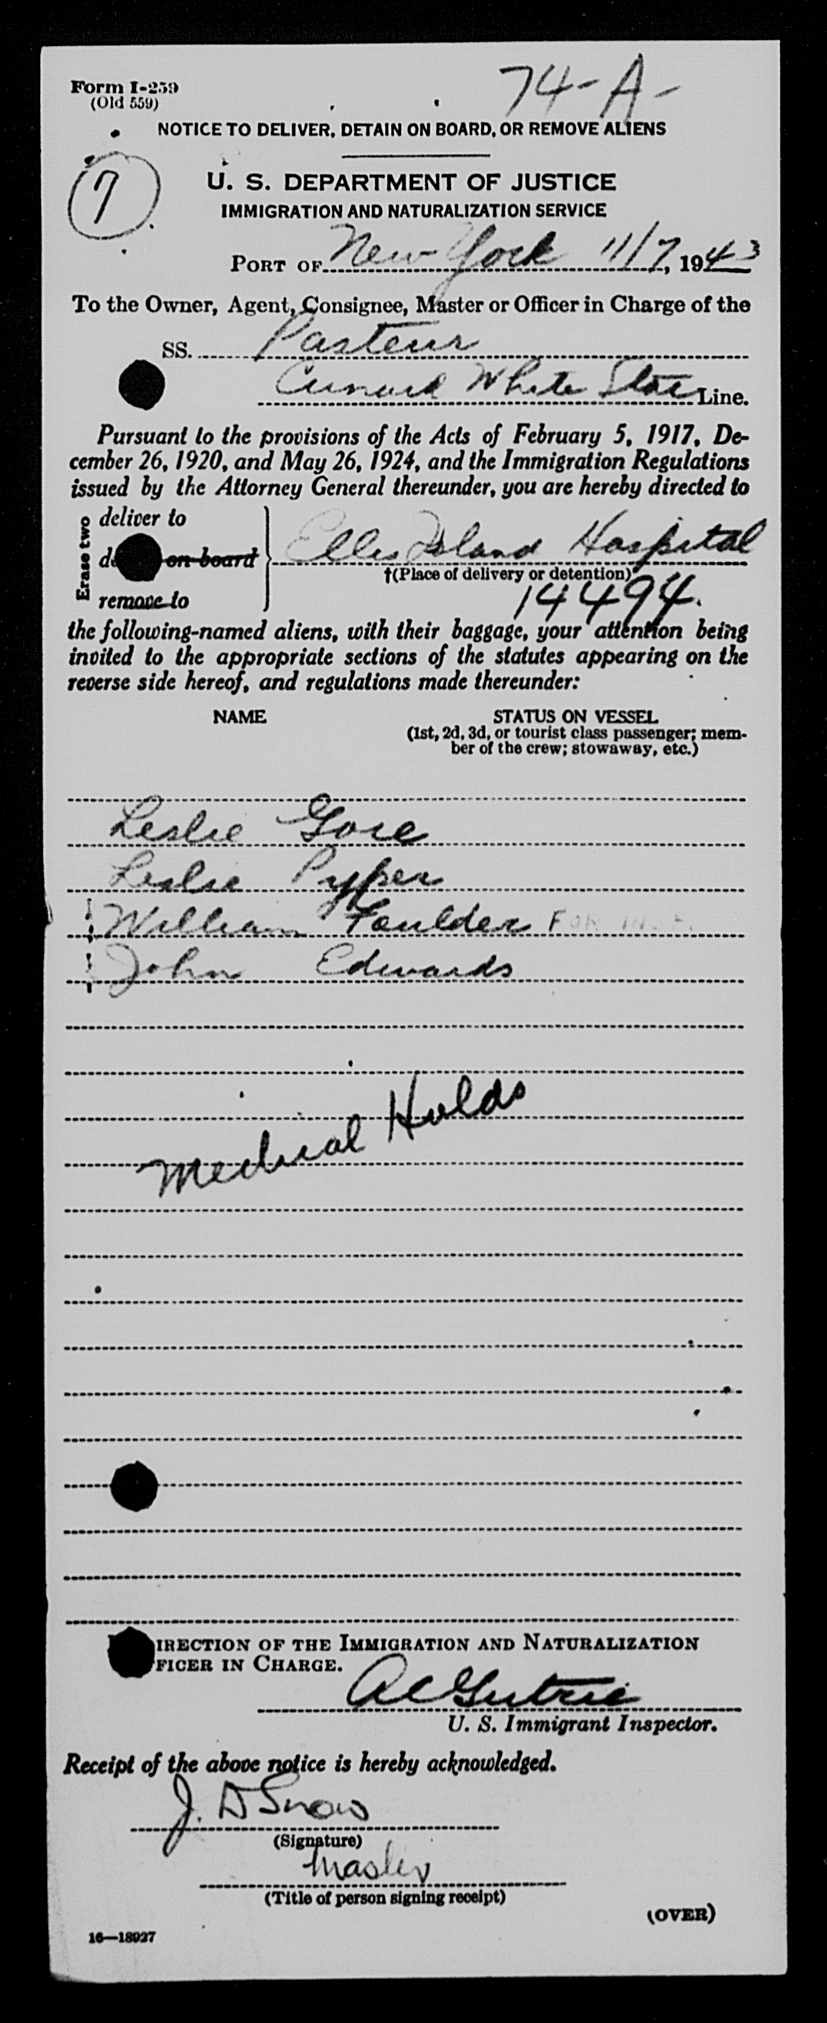 Form I-259
(Old 559)
74-A-
NOTICE TO DELIVER, DETAIN ON BOARD, OR REMOVE ALIENS
7
U. S. DEPARTMENT OF JUSTICE
IMMIGRATION AND NATURALIZATION SERVICE
PORT OF New York 11/7, 1943
To the Owner, Agent, Consignee, Master or Officer in Charge of the
SS. Pasteur
Cunard White Star Line.
Pursuant to the provisions of the Acts of February 5, 1917, De-
cember 26, 1920, and May 26, 1924, and the Immigration Regulations
issued by the Attorney General thereunder, you are hereby directed to
Erase two
deliver to
on board
Ellis Island Hospital
†(Place of delivery or detention)
remove to
14494.
the following-named aliens, with their baggage, your attention being
invited to the appropriate sections of the statutes appearing on the
reverse side hereof, and regulations made thereunder:
NAME STATUS ON VESSEL
(1st, 2d, 3d, or tourist class passenger; mem-
ber of the crew; stowaway, etc.)
Leslie Gore
Leslie Pyper
William Foulder
John Edwards
Medical Holds
IRECTION OF THE IMMIGRATION AND NATURALIZATION
FICER IN CHARGE.
U. S. Immigrant Inspector.
Receipt of the above notice is hereby acknowledged.
J. D Snow
(Signature)
Master
(Title of person signing receipt)
(OVER)
16—18927